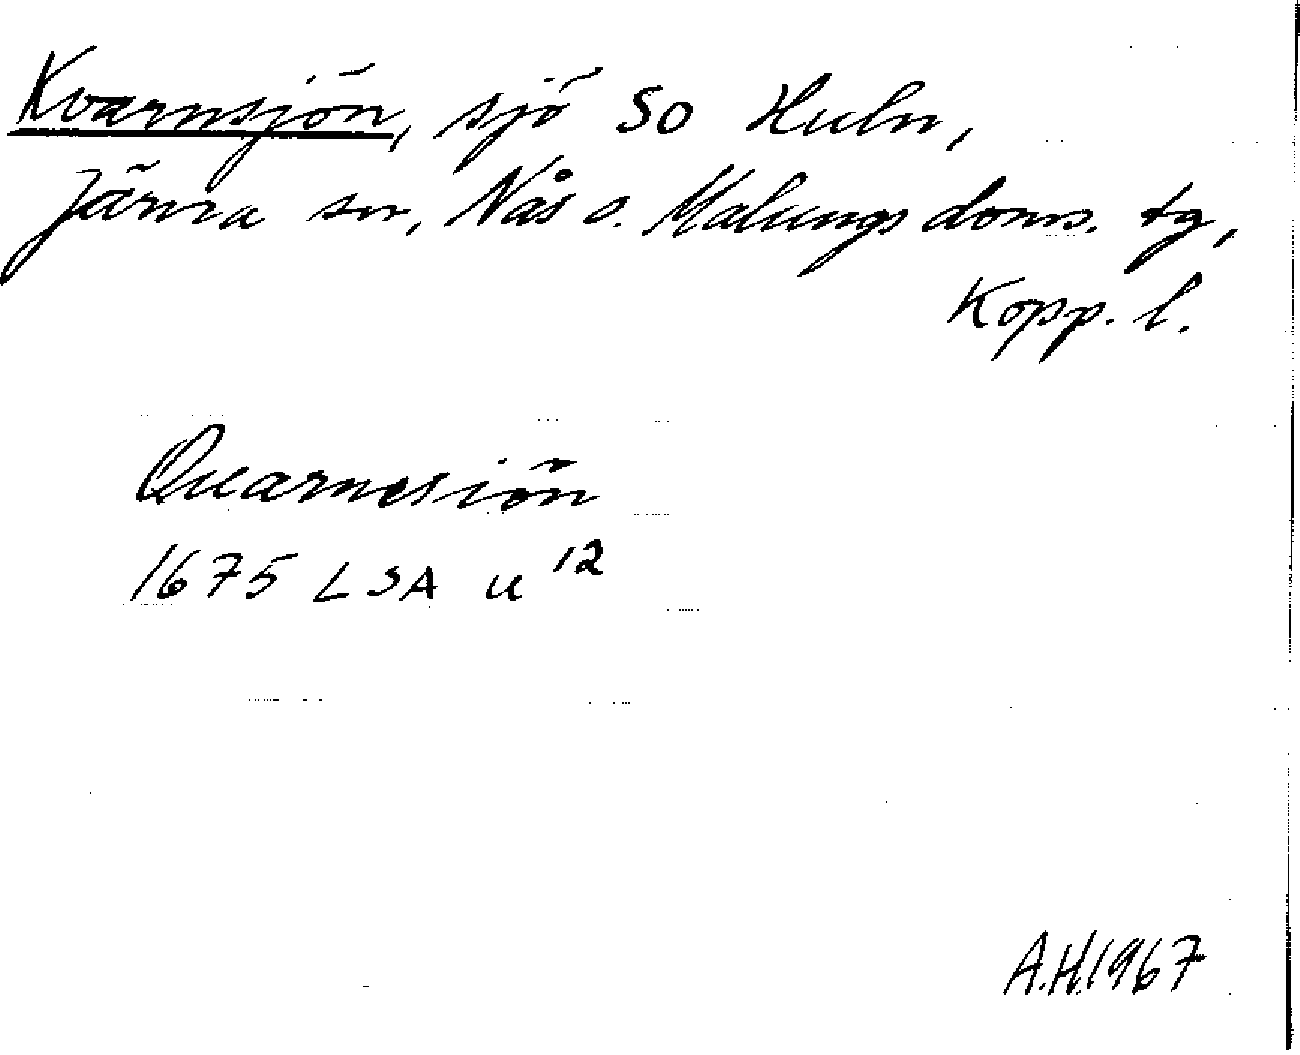 Kvarnsjön, sjö SO Huln,
Järna sn, Nås o. Malungs doms. tg,
Kopp. l.
Quarnesiön
1675 LSA u 12
A.H. 1967